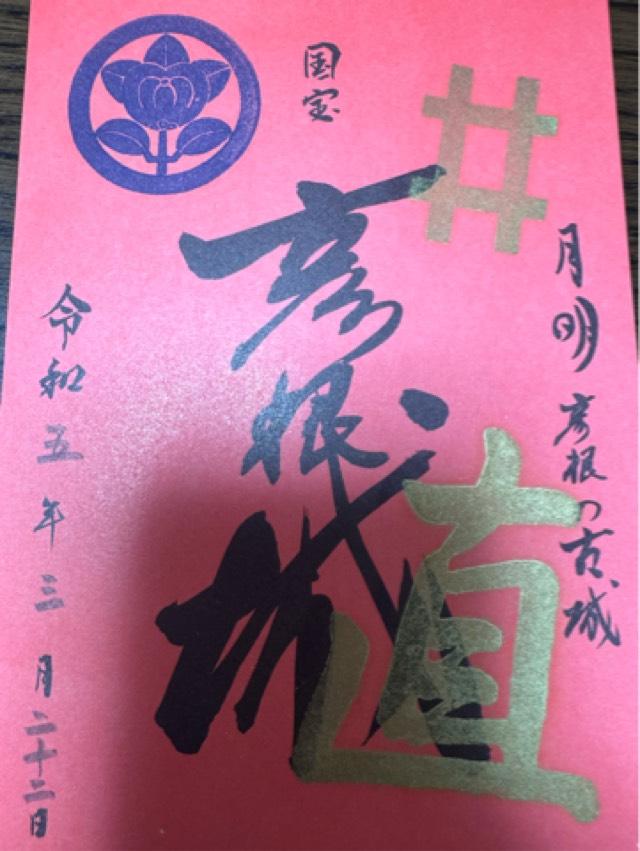 国宝
月明
彦根の古城
彦根城
井
直
令和五年三月二十二日